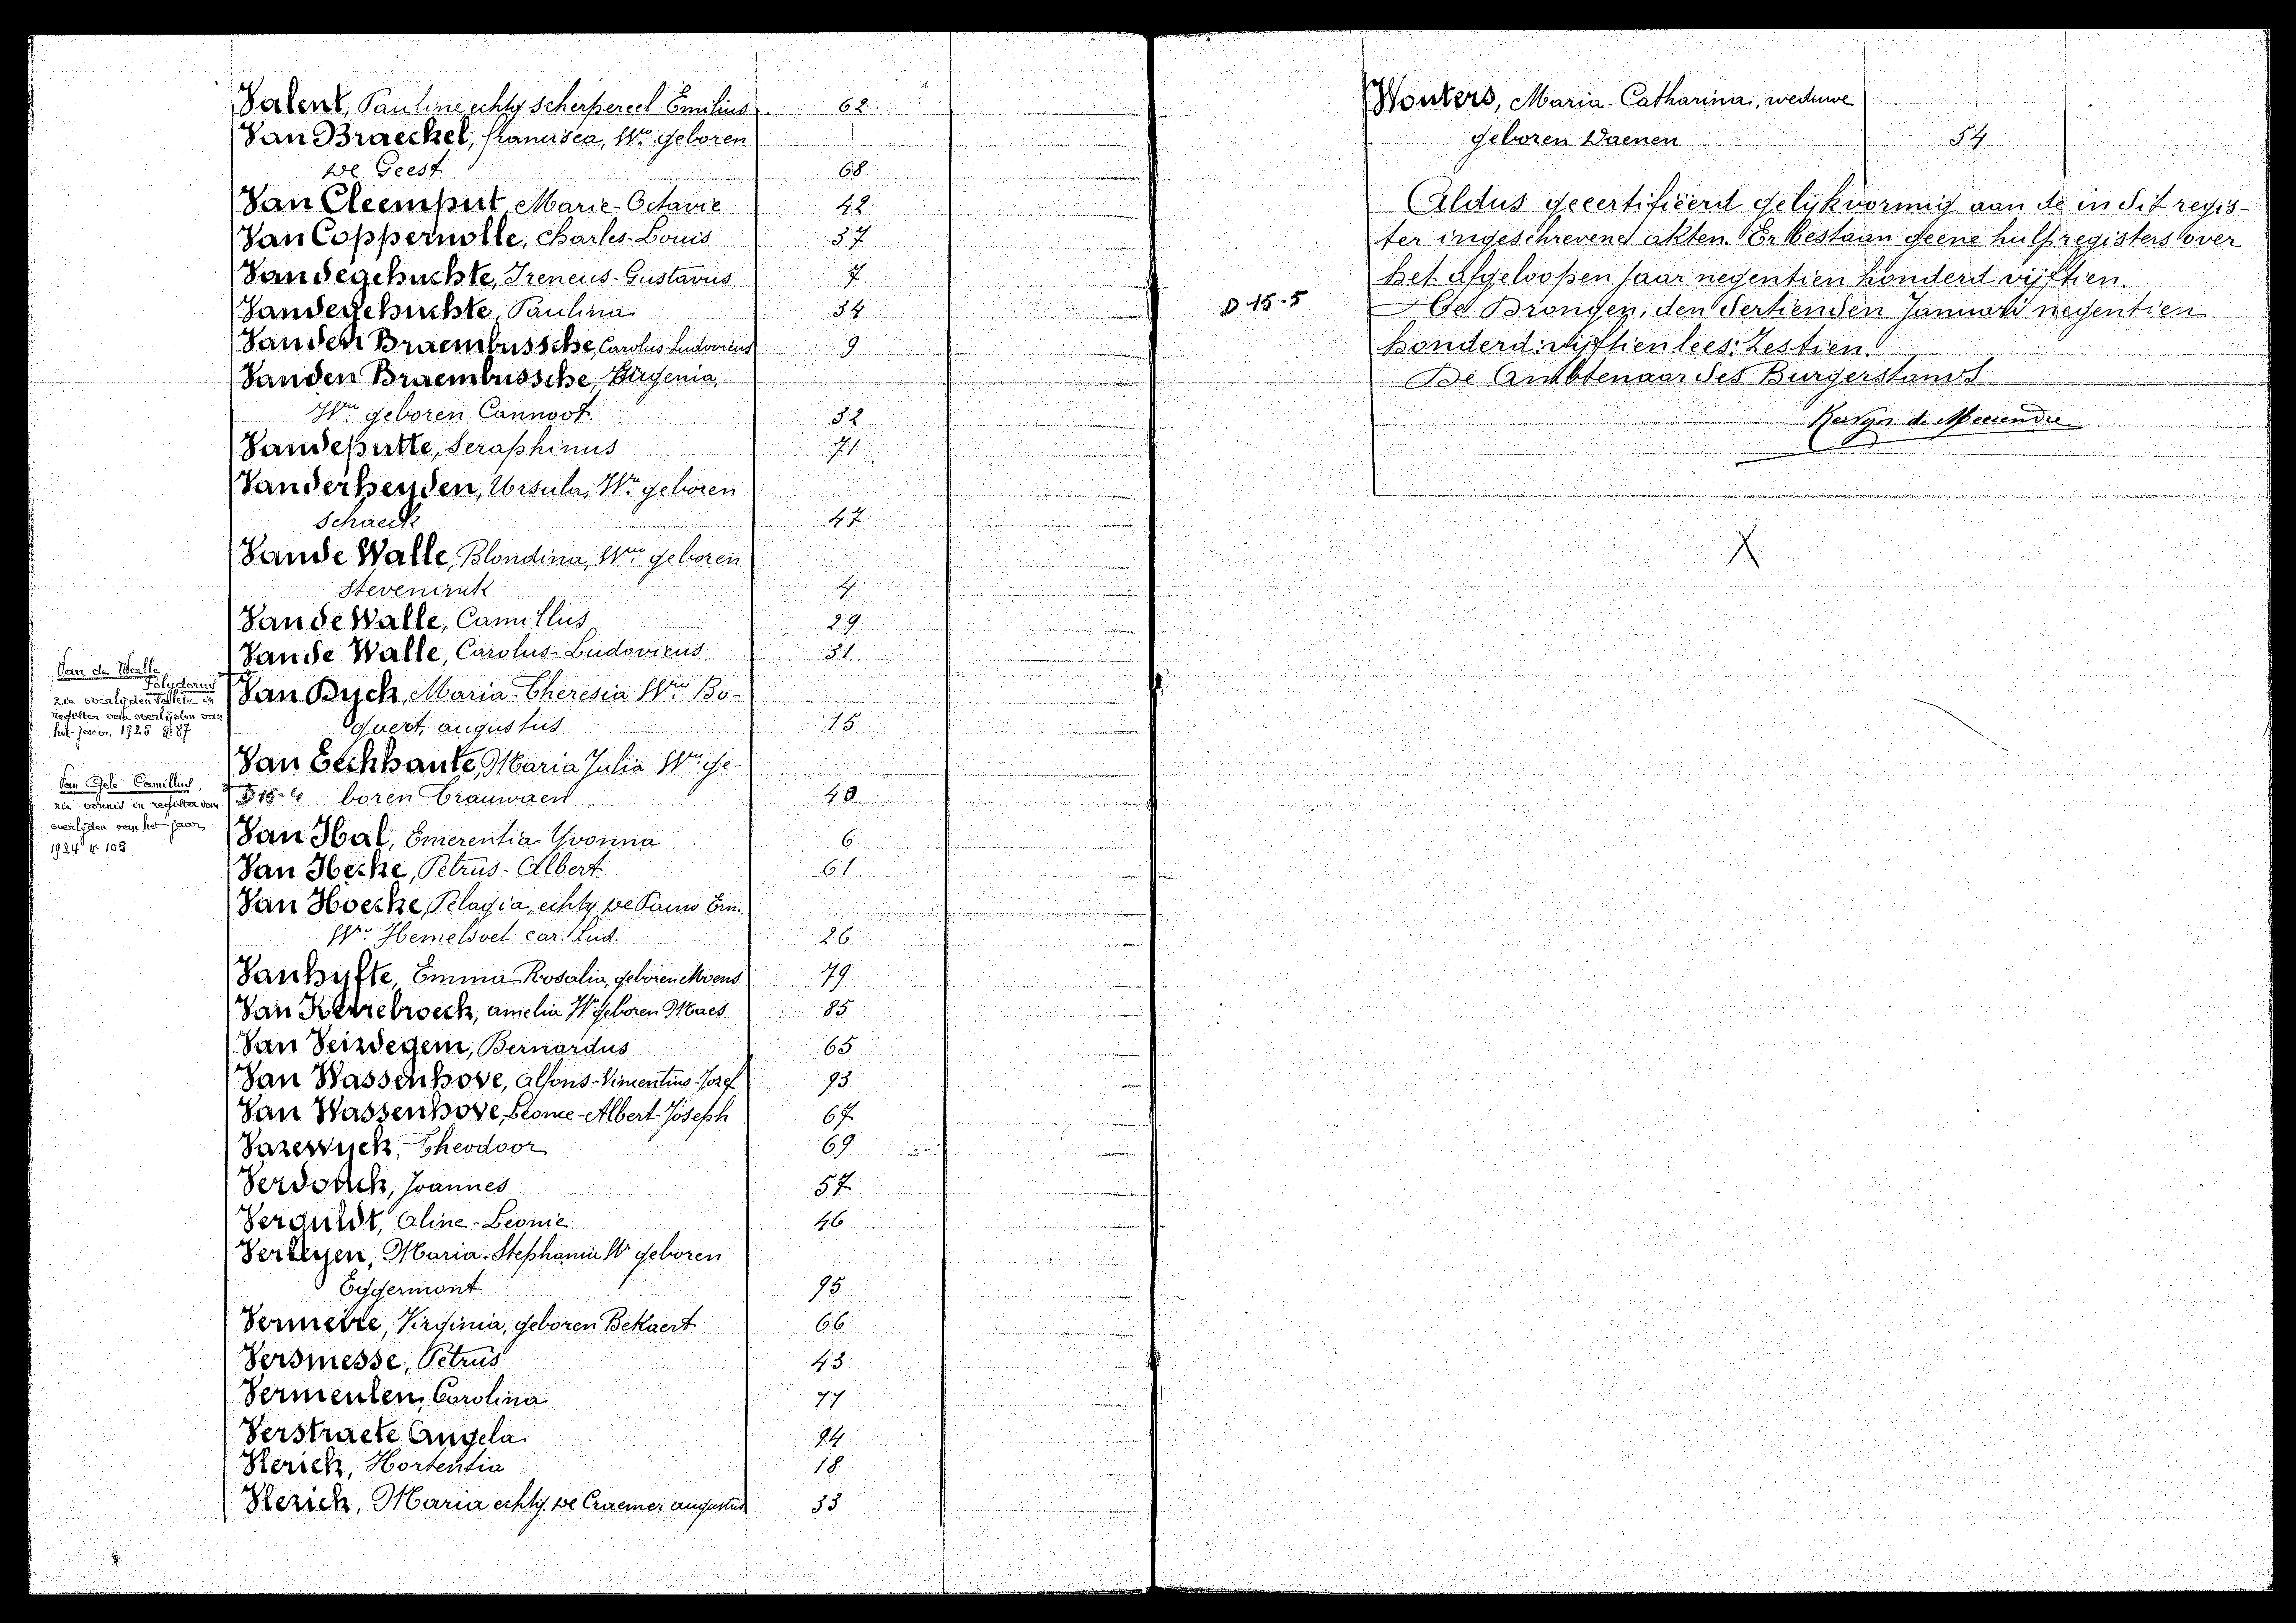 Valent, Pauline echtg Scherpereel Emilius 62
Van Braeckel, Francisca, Wwe geboren
De Geest 68
Van Cleemput Marie-Octavie 42
Van Coppernolle, Charles-Louis 37
Vandegehuchte, Ireneus-Gustavus 7
Vandegehuchte, Paulina 34
Vanden Braembussche, Carolus-Ludovicus 9
Vanden Braembussche, Virgenia,
Wwe geboren Cannoot. 32
Vandeputte, Seraphinus 71
Vanderheyden, Ursula, Wwe geboren
Schaeck 47
Vande Walle, Blondina, Wwe geboren
Steveninck 4
Van de Walle, Camillus 29
Vande Walle, Carolus-Ludovicus 31
Van de Walle
Polydorus
zie overlijden akte in
register van overlijden van
het jaar 1925 № 87
Van Dyck, Maria-Theresia Wwe Bo-
gaert, augustus 15
Van Eeckhaute, Maria Julia Wwe ge-
D 15-4 boren Crauwaert 40
Van Gele Camillus,
zie vonnis in register van
overlijden van het jaar
1924 № 105
Van Hal, Emerentia-Yvonna 6
Van Hecke, Petrus-Albert 61
Van Hoecke, Pelagia, echtg De Pauw Em.
Wwe Hemelsoet car. Lud. 26
Vanhyfte, Emma Rosalia, geboren Moens 79
Van Kerrebroeck, amelia We geboren Maes 85
Van Seizdegem, Bernardus 65
Van Wassenhove, Alfons-Vincentius-Jozef 93
Van Wassenhove, Leonce-Albert-Joseph 67
Vazewyck, Theodoor 69
Verdonck, Joannes 57
Verguldt, Aline-Leonie 46
Verleyen, Maria-Stephanie We geboren
Eggermont 95
Vermeire, Virginia, geboren Bekaert 66
Versmesse, Petrus 43
Vermeulen, Carolina 77
Verstraete Angela 94
Vlerick, Hortentia 18
Vlerick, Maria echtg. De Craemer augustus 33
Wouters, Maria-Catharina, weduwe
geboren Daenen 54
Aldus gecertifiëerd gelijkvormig aan de in dit regis-
ter ingeschrevene akten. Er bestaan geene hulpregisters over
het afgeloopen jaar negentien honderd vijftien.
D 15-5
Te Drongen, den dertienden Januari negentien
honderd: vijftien lees: Zestien.
De Ambtenaar des Burgerstands
Kervyn de Meerendre
X